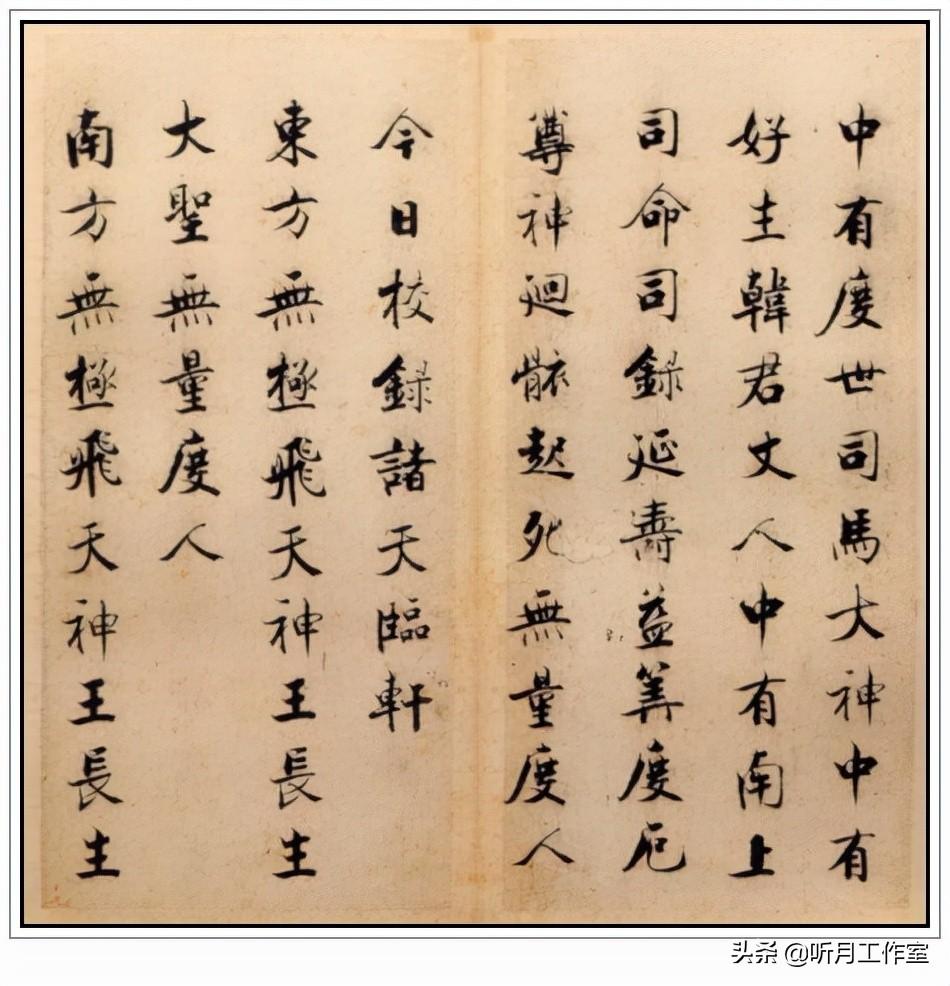 中有度世司馬大神中有
好生韓君丈人中有南上
司命司錄延壽益筭度厄
尊神迴骸起死無量度人
今日校錄諸天臨軒
東方無極飛天神王長生
大聖無量度人
南方無極飛天神王長生
头条 @听月工作室